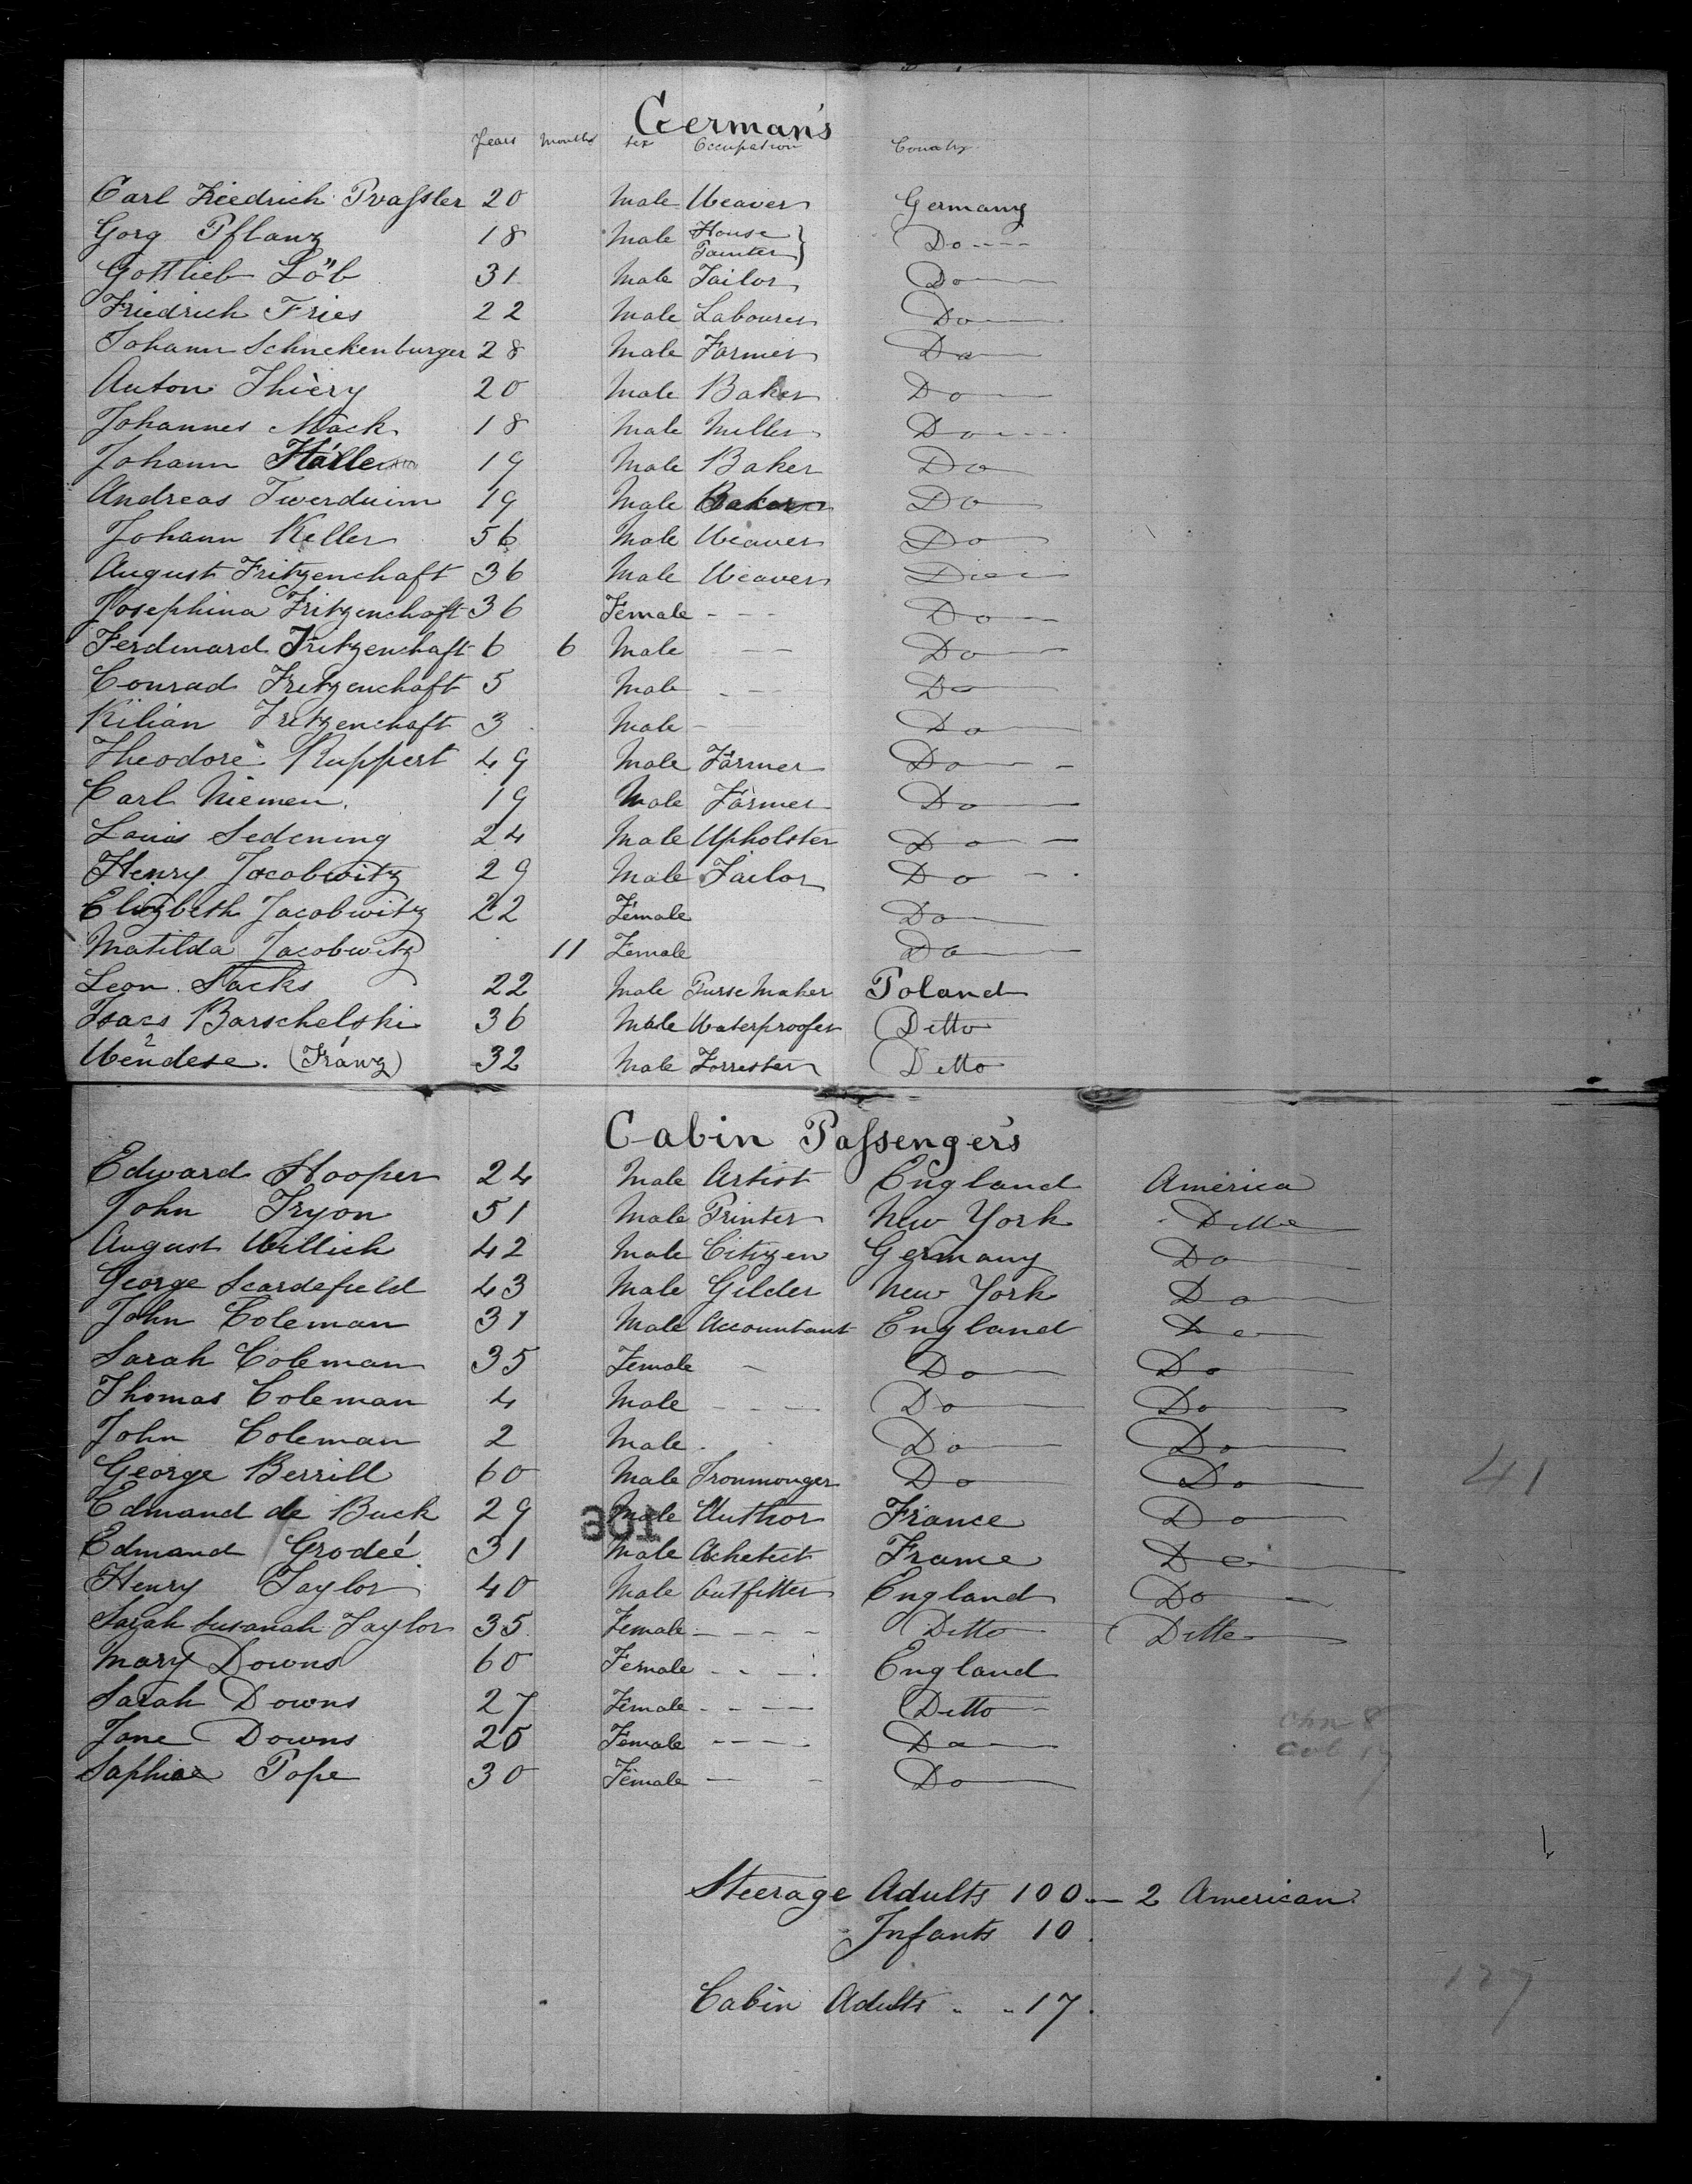 German's
Years Months Sex Occupation Country
Carl Friedrich Prassler 20 Male Weaver Germany
Gorg Pflanz 18 Male House Painter } Do
Gottlieb Löb 31 Male Tailor Do
Friedrich Fries 22 Male Labourer Do
Johann Schnekenburger 28 Male Farmer Do
Anton Thiery 20 Male Baker Do
Johannes Mack 18 Male Miller Do
Johann Haller 19 Male Baker Do
Andreas 19 Male Baker Do
Johann Keller 56 Male Weaver Do
August Fritzenchaft 36 Male Weaver Do
Josephina Fritzenchaft 36 Female Do
Ferdinard Fritzenchaft 6 6 Male Do
Conrad Fritzenchaft 5 Male Do
Kilian Fritzenchaft 3 Male Do
Theodore Ruppert 49 Male Farmer Do
Carl Niemen 19 Male Farmer Do
Louis Sedening 24 Male Upholster Do
Henry Jacobwitz 29 Male Tailor Do
Elizbeth Jacobwitz 22 Female Do
Matilda Jacobwitz 11 Female Do
Leon Sacks 22 Male Purse Maker Poland
Isacs Barschelski 36 Male Waterproofer Ditto
Wendese. (Franz) 32 Male Forrester Ditto
Cabin Passenger's
Edward Hooper 24 Male Artist England America
John Tryon 51 Male Printer New York Ditto
August Willich 42 Male Citizen Germany Do
George Scardefield 43 Male Gilder New York Do
John Coleman 31 Male Accountant England Do
Sarah Coleman 35 Female Do Do
Thomas Coleman 4 Male Do Do
John Coleman 2 Male Do Do
George Berrill 60 Male Ironmonger Do Do 41
Edmand de Buck 29 Male Author France Do
301
Edmand Grodeé 31 Male Achetect France Do
Henry Taylor 40 Male Outfitter England Do
Sarah Susanah Taylor 35 Female Ditto Ditto
Mary Downs 60 Female England
Sarah Downs 27 Female Ditto
Jane Downs 25 Female Do
Saphiae Pope 30 Female Do
Steerage Adults 100 — 2 American
Infants 10
Cabin Adults " " 17.
127